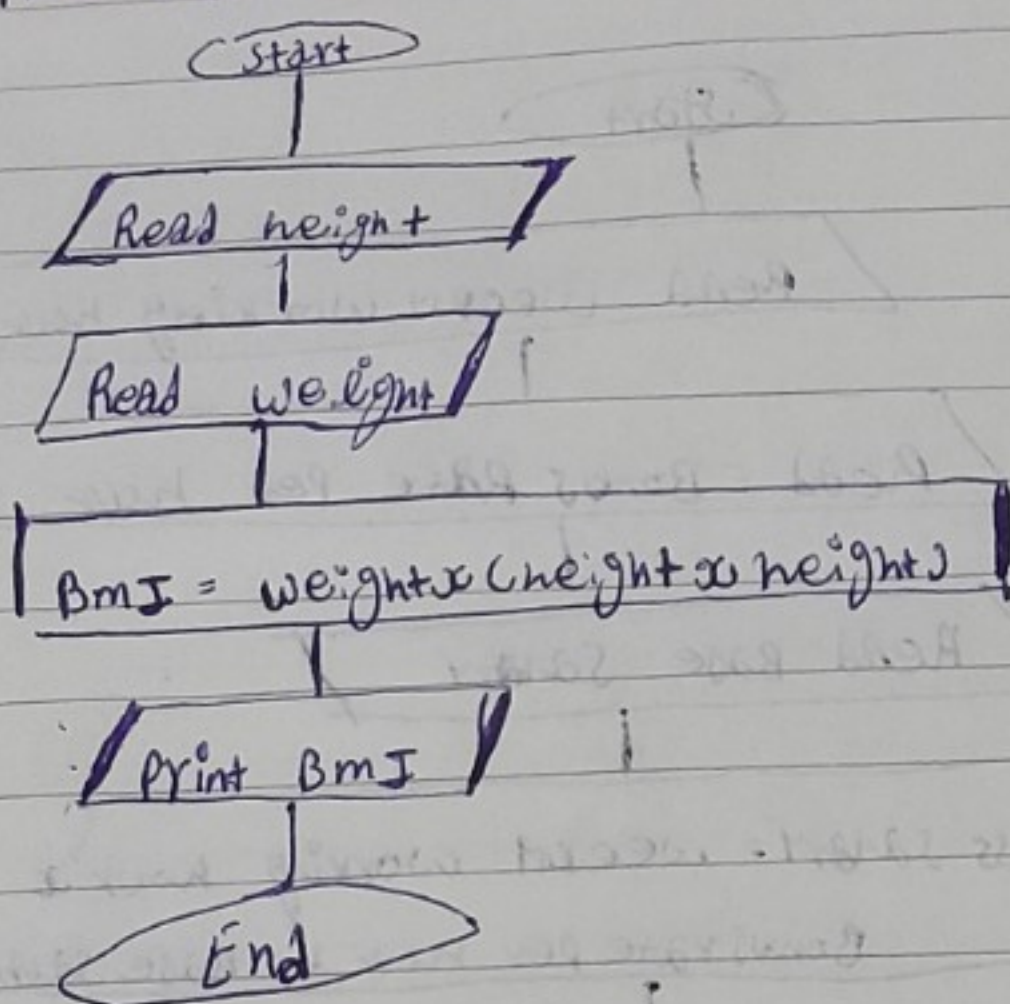 Start
Read height
Read weight
BmI = weight x (height x height)
Print BmI
End